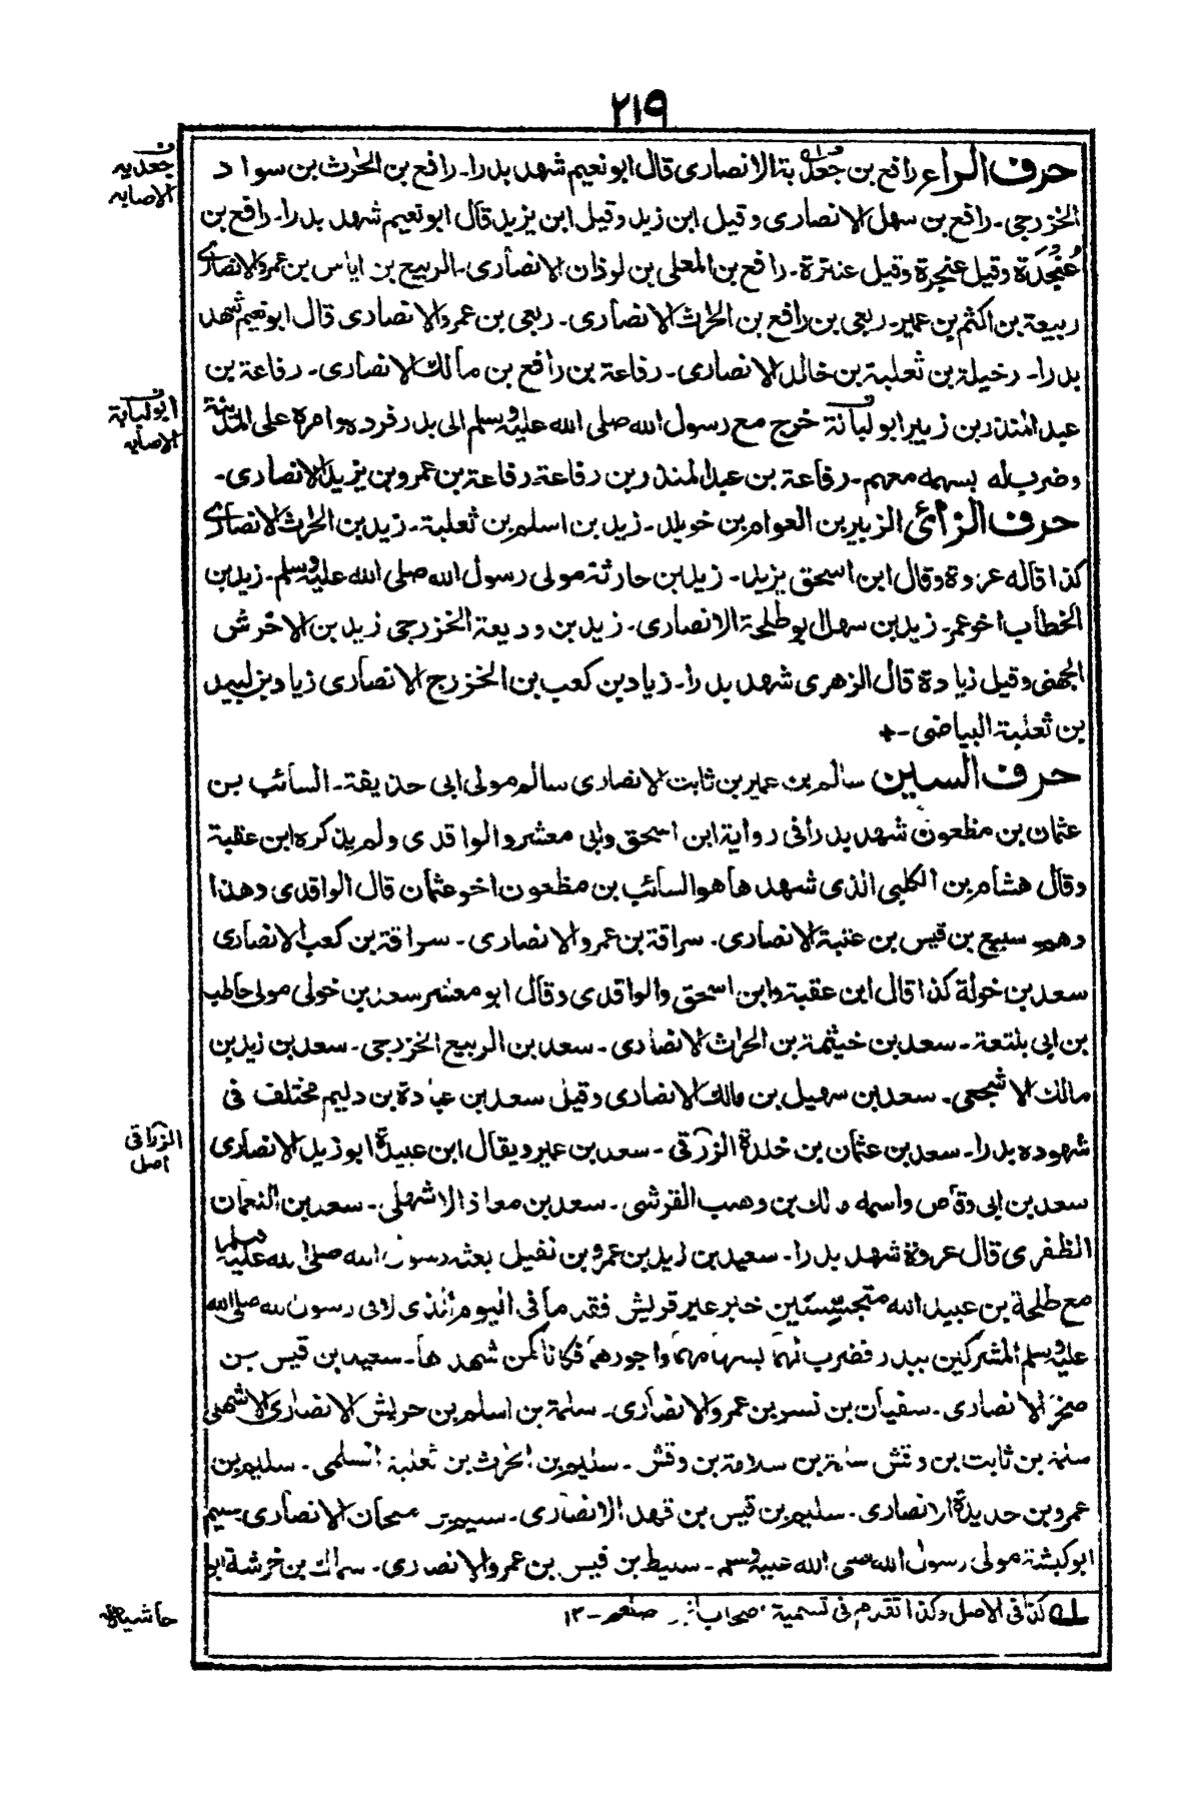 ٢١٩
حرف الراء رافع بن جعدبة الانصاري قال ابو نعيم شهد بدرا۔ رافع بن الحرث بن سواد
الخزرجي۔ رافع بن سهل الانصاري وقيل ابن زيد وقيل ابن يزيد قال ابو نعيم شهد بدرا۔ رافع بن
عنجدة وقيل عنجرة وقيل عنترة۔ رافع بن المعلى بن لوذان الانصاري۔ الربيع بن اياس بن عمرو الانصاري
ربيعة بن اكثم بن عمير۔ ربعي بن رافع بن الحرث الانصاري۔ ربعي بن عمرو الانصاري قال ابو نعيم شهد
بدرا۔ رخيلة بن ثعلبة بن خالد الانصاري۔ رفاعة بن رافع بن مالك الانصاري۔ رفاعة بن
عبد المنذر بن زبير ابو لبانة خرج مع رسول الله صلى الله عليه وسلم الى بدر فرده وامره على المدينة
وضرب له بسهمه معهم۔ رفاعة بن عبد المنذر بن رفاعة رفاعة بن عمرو بن يزيد الانصاري۔
حرف الزائ الزبير بن العوام بن خويلد۔ زيد بن اسلم بن ثعلبة۔ زيد بن الحرث الانصاري
كذا قاله عروة وقال ابن اسحق يزيد۔ زيد بن حارثة مولى رسول الله صلى الله عليه وسلم۔ زيد بن
الخطاب اخو عمر۔ زيد بن سهل ابو طلحة الانصاري۔ زيد بن وديعة الخزرجي زيد بن الاخرش
الجهني وقيل زيادة قال الزهري شهد بدرا۔ زياد بن كعب بن الخزرج الانصاري زياد بن لبيد
بن ثعلبة البياضي۔+
حرف السين سالم بن عمير بن ثابت الانصاري سالم مولى ابي حذيفة۔ السائب بن
عثمان بن مظعون شهد بدرا في رواية ابن اسحق وابي معشر والواقدي ولم يذكره ابن عقبة
وقال هشام بن الكلبي الذي شهدها هو السائب بن مظعون اخو عثمان قال الواقدي وهذا
وهم سبيع بن قيس بن عتبة الانصاري۔ سراقة بن عمرو الانصاري۔ سراقة بن كعب الانصاري
سعد بن خولة كذا قال ابن عقبة وابن اسحق والواقدي وقال ابو معشر سعد بن خولي مولى حاطب
بن ابي بلتعة۔ سعد بن خيثمة بن الحرث الانصاري۔ سعد بن الربيع الخزرجي۔ سعد بن زيد بن
مالك الاشجعي۔ سعد بن سهيل بن مالك الانصاري وقيل سعد بن عبادة بن دليم مختلف في
شهوده بدرا۔ سعد بن عثمان بن خلدة الزرقي۔ سعد بن عمير ويقال ابن عبيدة ابو زيد الانصاري
سعد بن ابي وقاص واسمه مالك بن وهب القرشي۔ سعد بن معاذ الاشهلي۔ سعد بن النعمان
الظفري قال عروة شهد بدرا۔ سعيد بن زيد بن عمرو بن نفيل بعثه رسول الله صلى الله عليه وسلم
مع طلحة بن عبيد الله متجسسين خبر عير قريش فقدما في اليوم الذي لاقى رسول الله صلى الله
عليه وسلم المشركين ببدر فضرب لهما بسهامهما واجورهما فكانا كمن شهدها۔ سعيد بن قيس بن
صخر الانصاري۔ سفيان بن نسر بن عمرو الانصاري۔ سلمة بن اسلم بن حريش الانصاري الاشهلي
سلمة بن ثابت بن وقش سلمة بن سلامة بن وقش۔ سليم بن الحرث بن ثعلبة السلمي۔ سليم بن
عمرو بن حديدة الانصاري۔ سليم بن قيس بن قهد الانصاري۔ سليم بن ملحان الانصاري سليم
ابو كبشة مولى رسول الله صلى الله عليه وسلم۔ سليط بن قيس بن عمرو الانصاري۔ سماك بن خرشة ابو
له كذا في الاصل وكذا تقدم في تسمية اصحاب
١٢
جعدبه
الاصابه
ابو لبابة
الاصابه
الزراقي
اصل
حاشياه